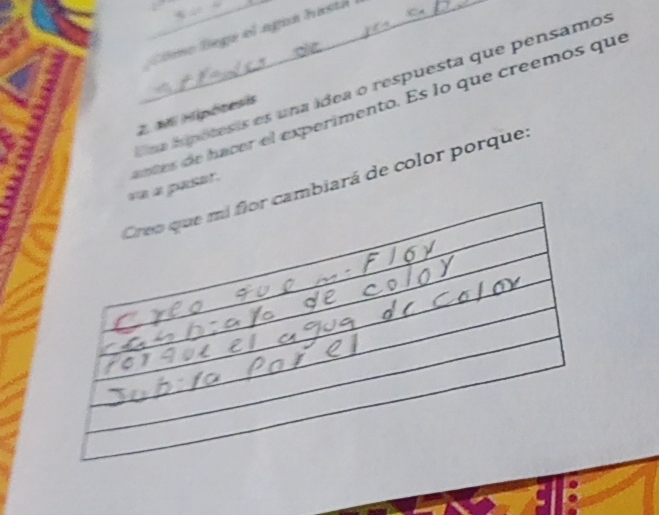 ¿Cómo llega el agua hasta
de
2. Mi Hipótesis
Una hipótesis es una idea o respuesta que pensamos
antes de hacer el experimento. Es lo que creemos que
va a pasar.
Creo que mi flor cambiará de color porque:
Creo que mi Flor
cambiara de color
Porque el agua de color
Subira por el